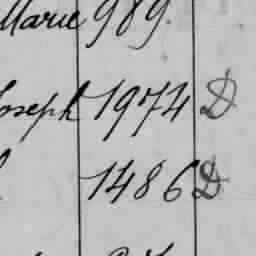 Marie 989.
Joseph 1974 D
1486 D